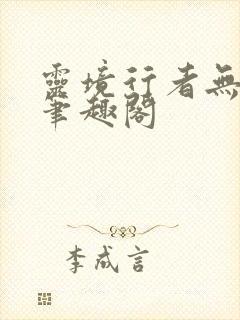 靈境行者無
筆趣閣
李成言